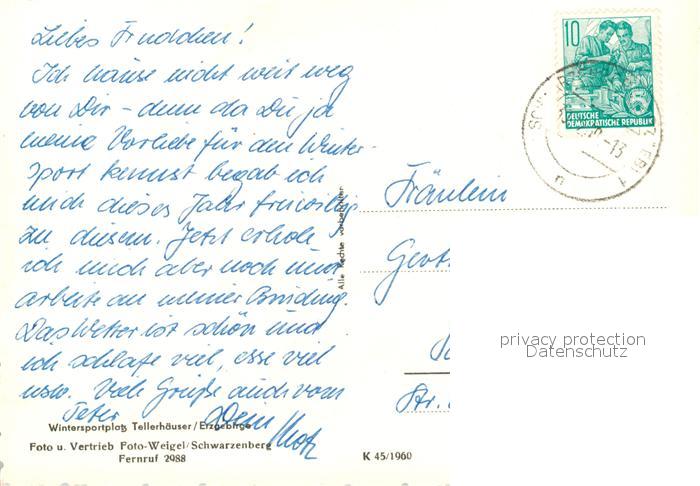 Liebes Frudchen!
Ich hause nicht weit weg
von Dir – denn da Du ja
meine Vorliebe für den Winter-
sport kennst begab ich
mich dieses Jahr freiwillig
zu diesem. Jetzt erhole
ich mich aber noch und
arbeite an meiner Bräunung.
Das Wetter ist schön und
ich schlafe viel, esse viel
usw. Viele Grüße auch vom
Peter Dein
Wintersportplatz Tellerhäuser/Erzgebirge
Foto u. Vertrieb Foto-Weigel/Schwarzenberg
Fernruf 2988
Alle Rechte vorbehalten
K 45/1960
10
DEUTSCHE
DEMOKRATISCHE REPUBLIK
Fräulein
Gert
Str.
privacy protection
Datenschutz